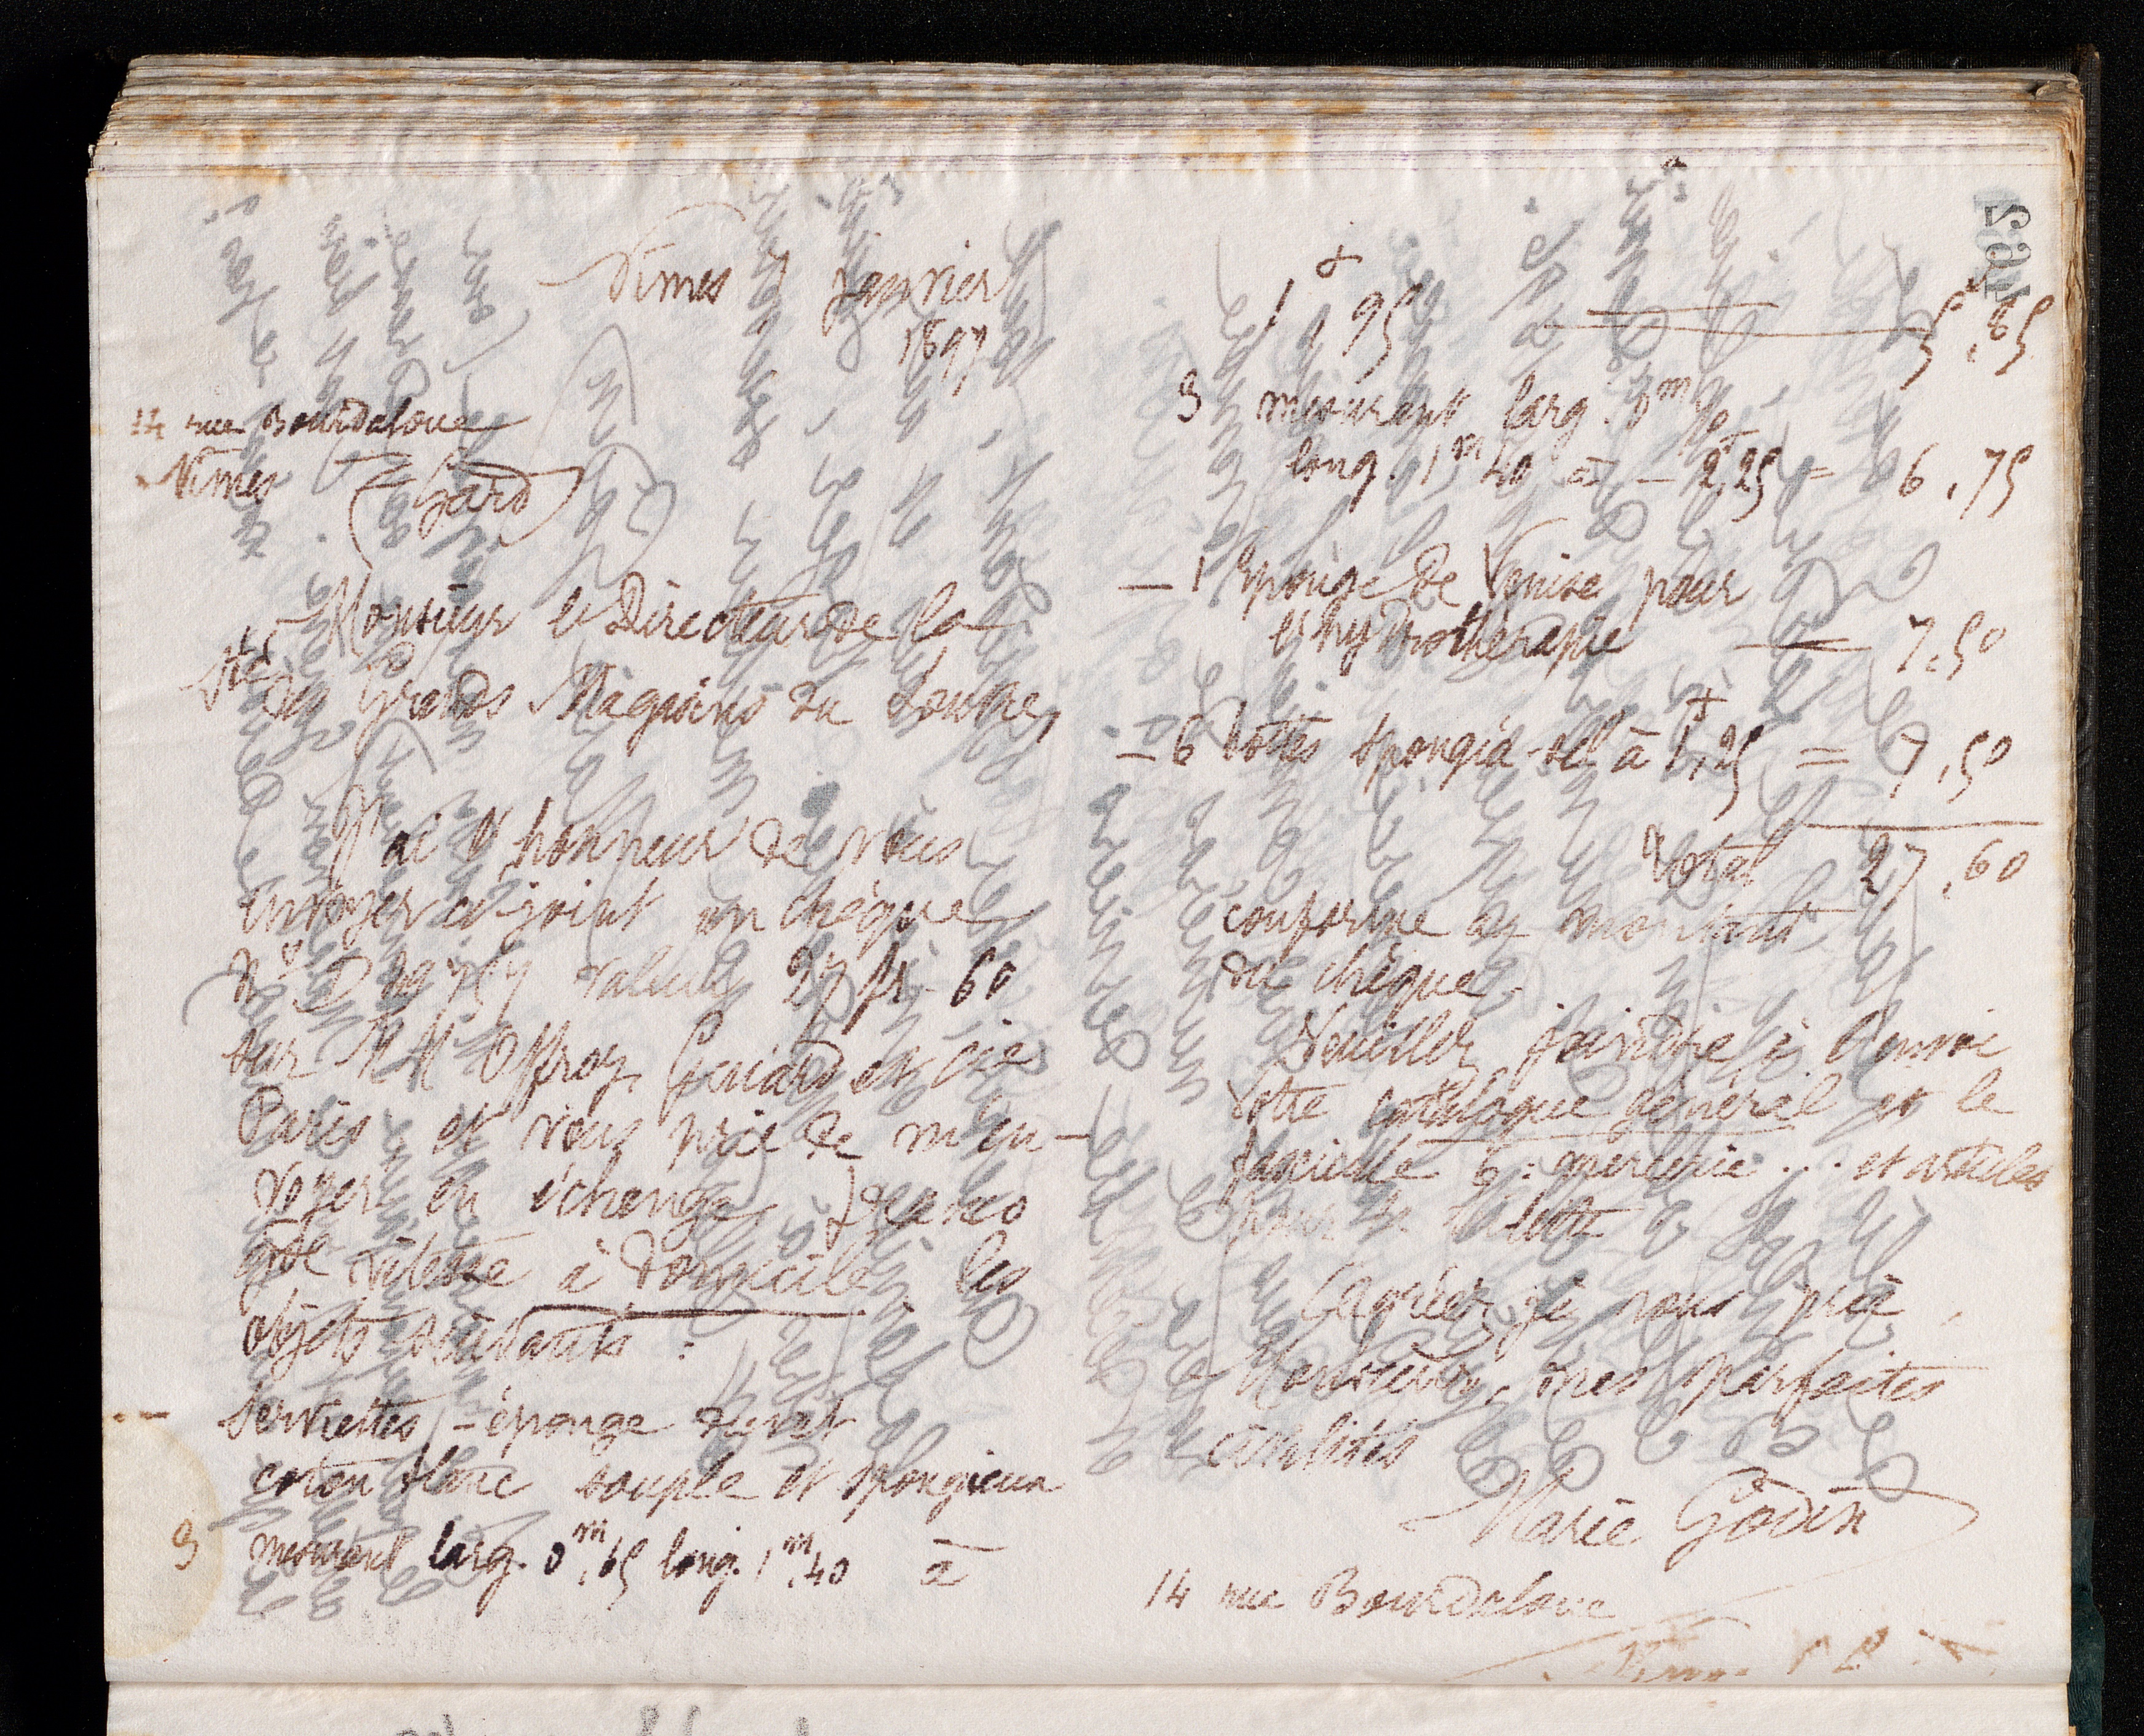 Nîmes 7 Janvier
1897
14 rue Bourdaloue
Nîmes (Gard)
Monsieur le Directeur de la
Sté des Grands Magasins du Louvre,
J'ai l'honneur de vous
envoyer ci-joint un chèque
No valeur 27 fr. 60
sur MM Offroy, Guiard et Cie
Paris et vous prie de m'en-
voyer en échange, franco
gde vitesse à domicile les
objets suivants :
— serviettes-éponge
coton blanc souple et spongieux
3 mesurant larg. 0m,65 long. 1m,40 à
1f,95 — 5,85
3 mesurant larg. 0m
long. 1m 40 à — 2f,25 = 6,75
— 1 Eponge de Venise pour
l'hydrothérapie — 7.50
— 6 boîtes à 1f,25 = 7,50
Total 27,60
conforme au montant
du chèque.
Veuillez joindre à l'envoi
votre catalogue général et le
6: mercerie ... et articles
pour la toilette
Agréer je vous prie,
Monsieur, mes parfaites
civilités
Marie Godin
14 rue Bourdaloue
Nîmes
462